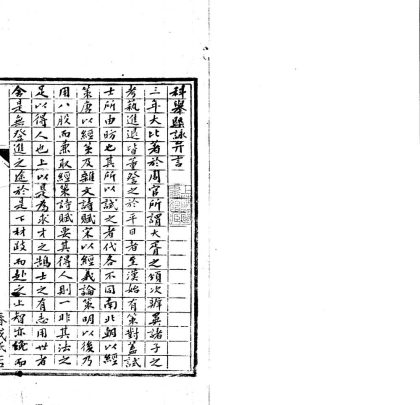 科舉懸詠弁言
三年大比著於周官所謂大胥之頒次辨異諸子之
考藝進退皆董登之於平日者至漢始有策對蓋試
士所由昉也其所以試之者代各不同南北朝以經
策唐以經策及雜文詩賦宋以經義論策明以後乃
用八股而兼取經策詩賦要其得人則一非其法之
足以得人也上以是為求才之鵠士之有志用世者
舍是無登進之途於是下材跂而赴之上智亦俛而